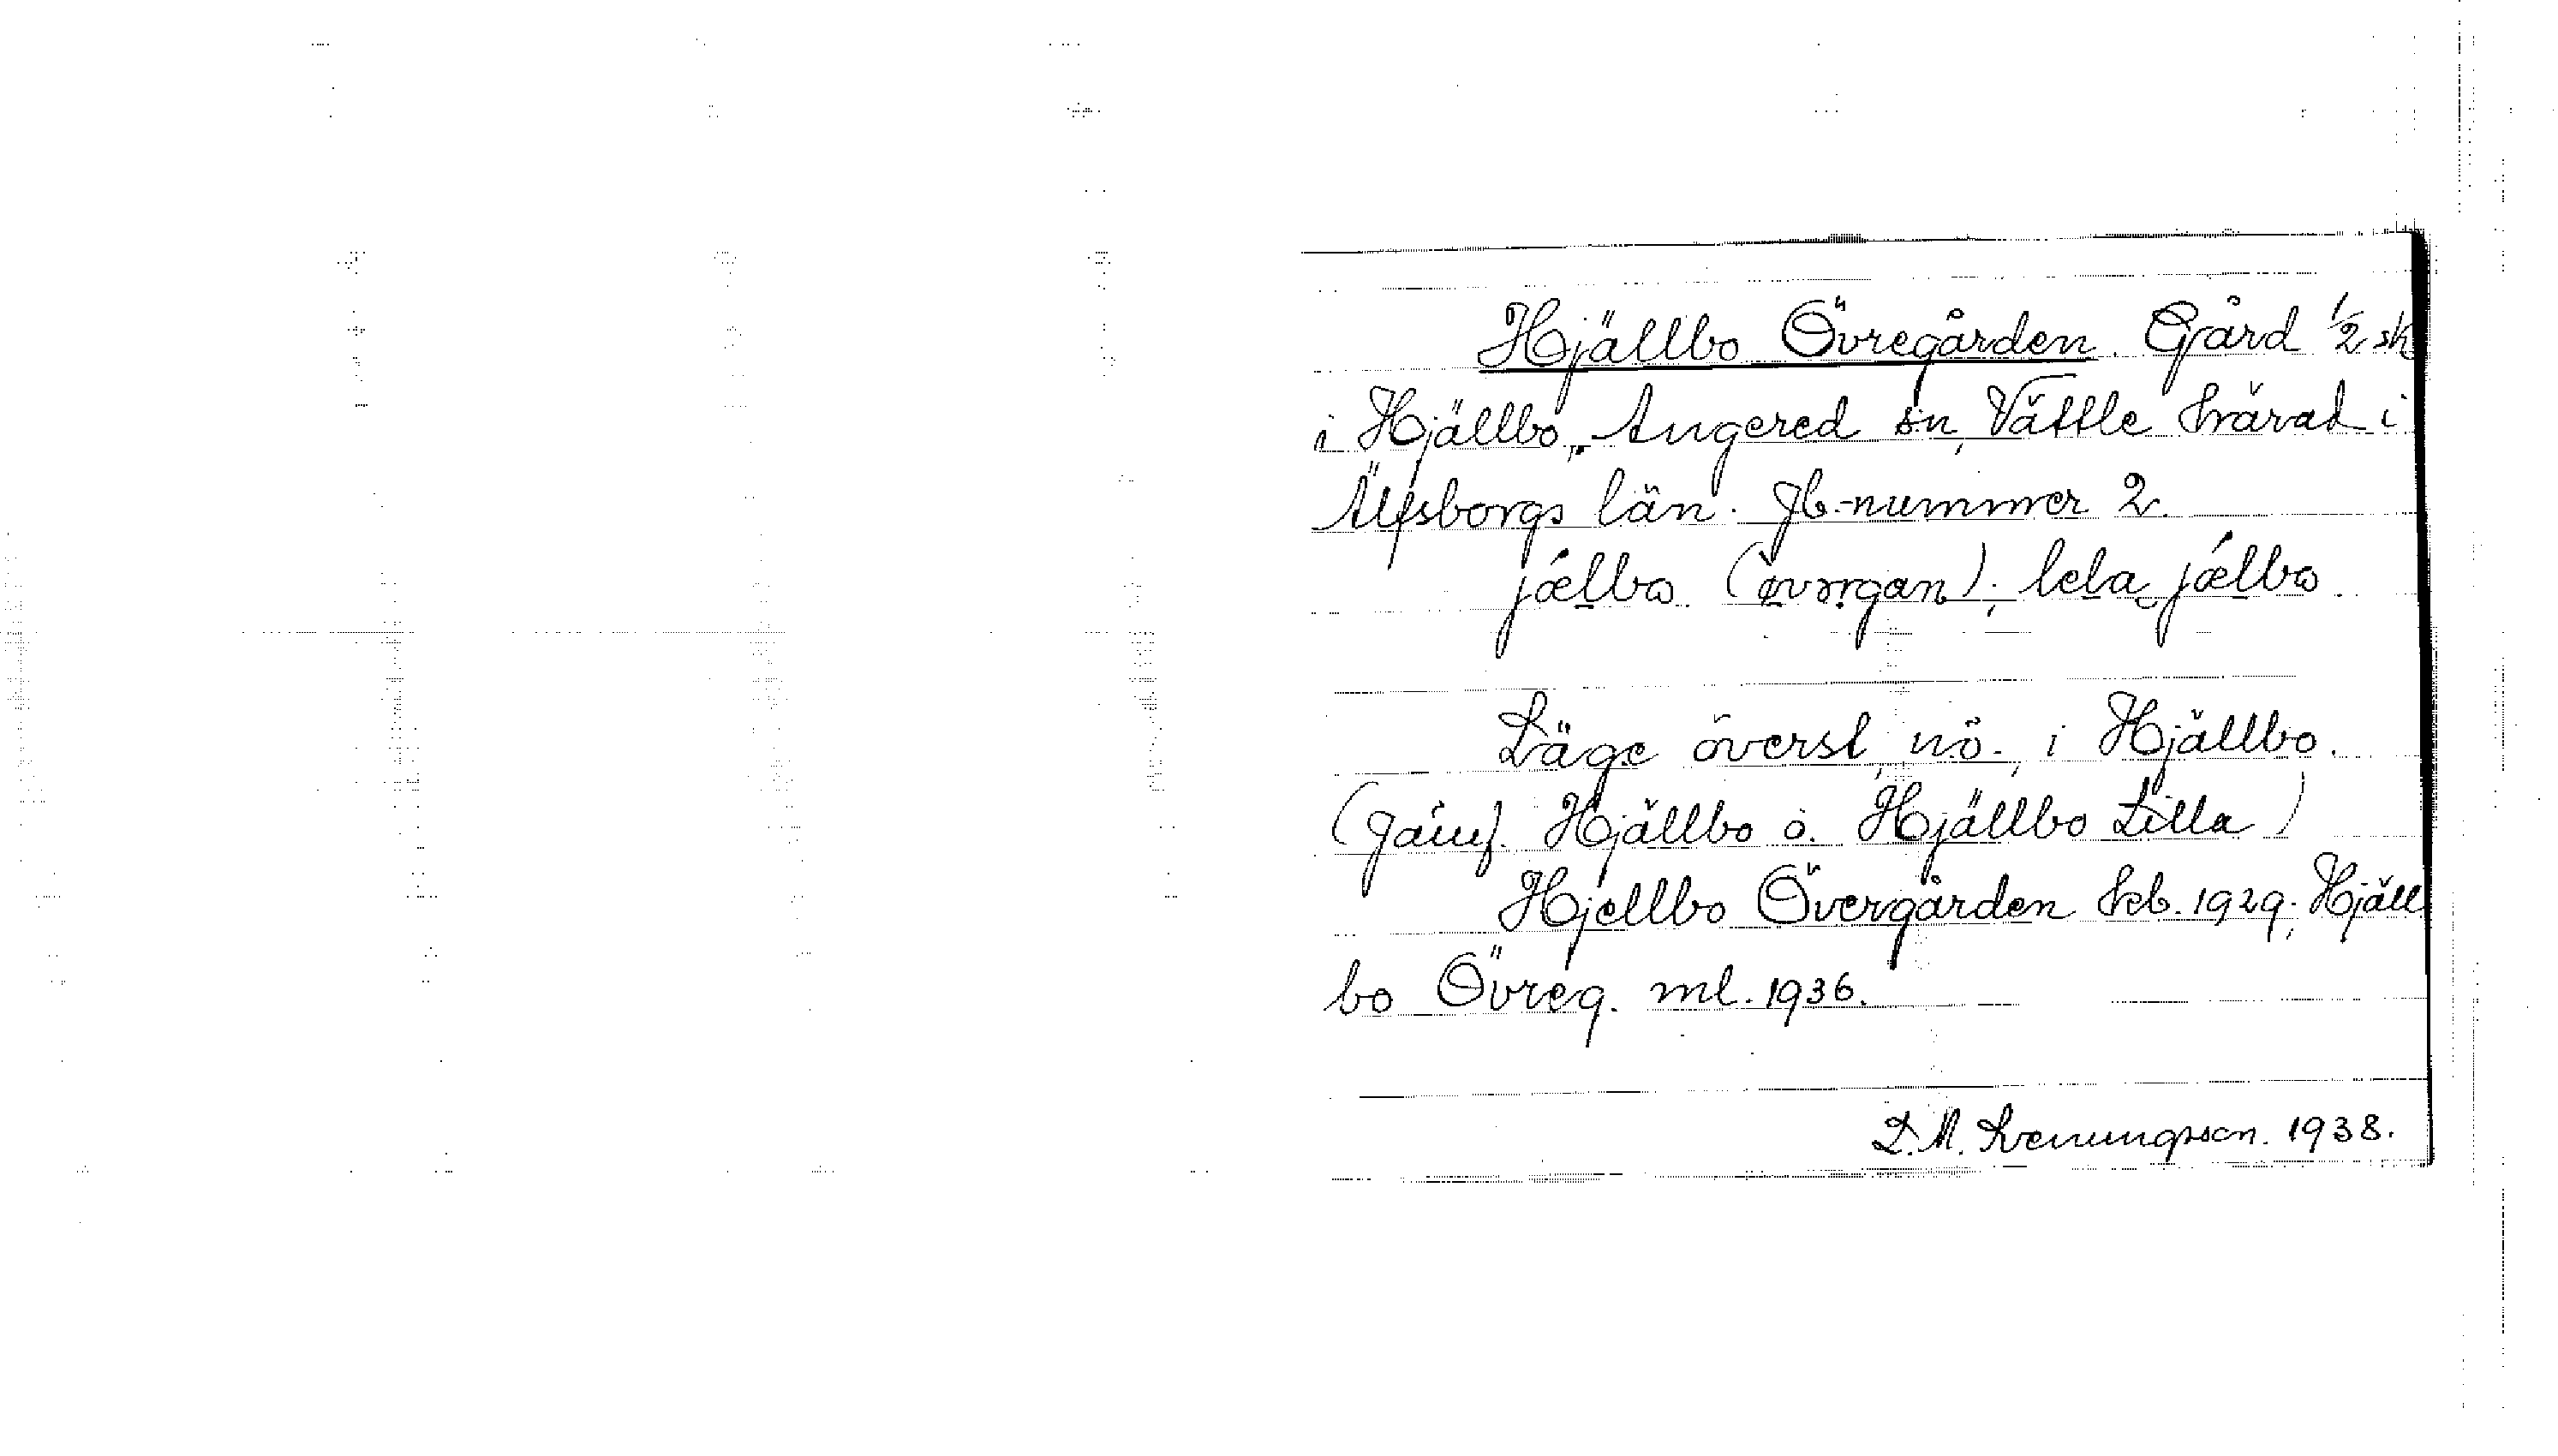 Hjällbo Övregården. Gård 1/2 sk
i Hjällbo, Angered sn, Vättle härad i
Älfsborgs län. Jb.-nummer 2.
jælbo (øvərgan); lela jælbo.
Läge överst, nö., i Hjällbo.
(Jämf. Hjällbo o. Hjällbo Lilla)
Hjellbo Övergården Skb. 1929; Hjäll
bo Övreg. ml. 1936.
1938.